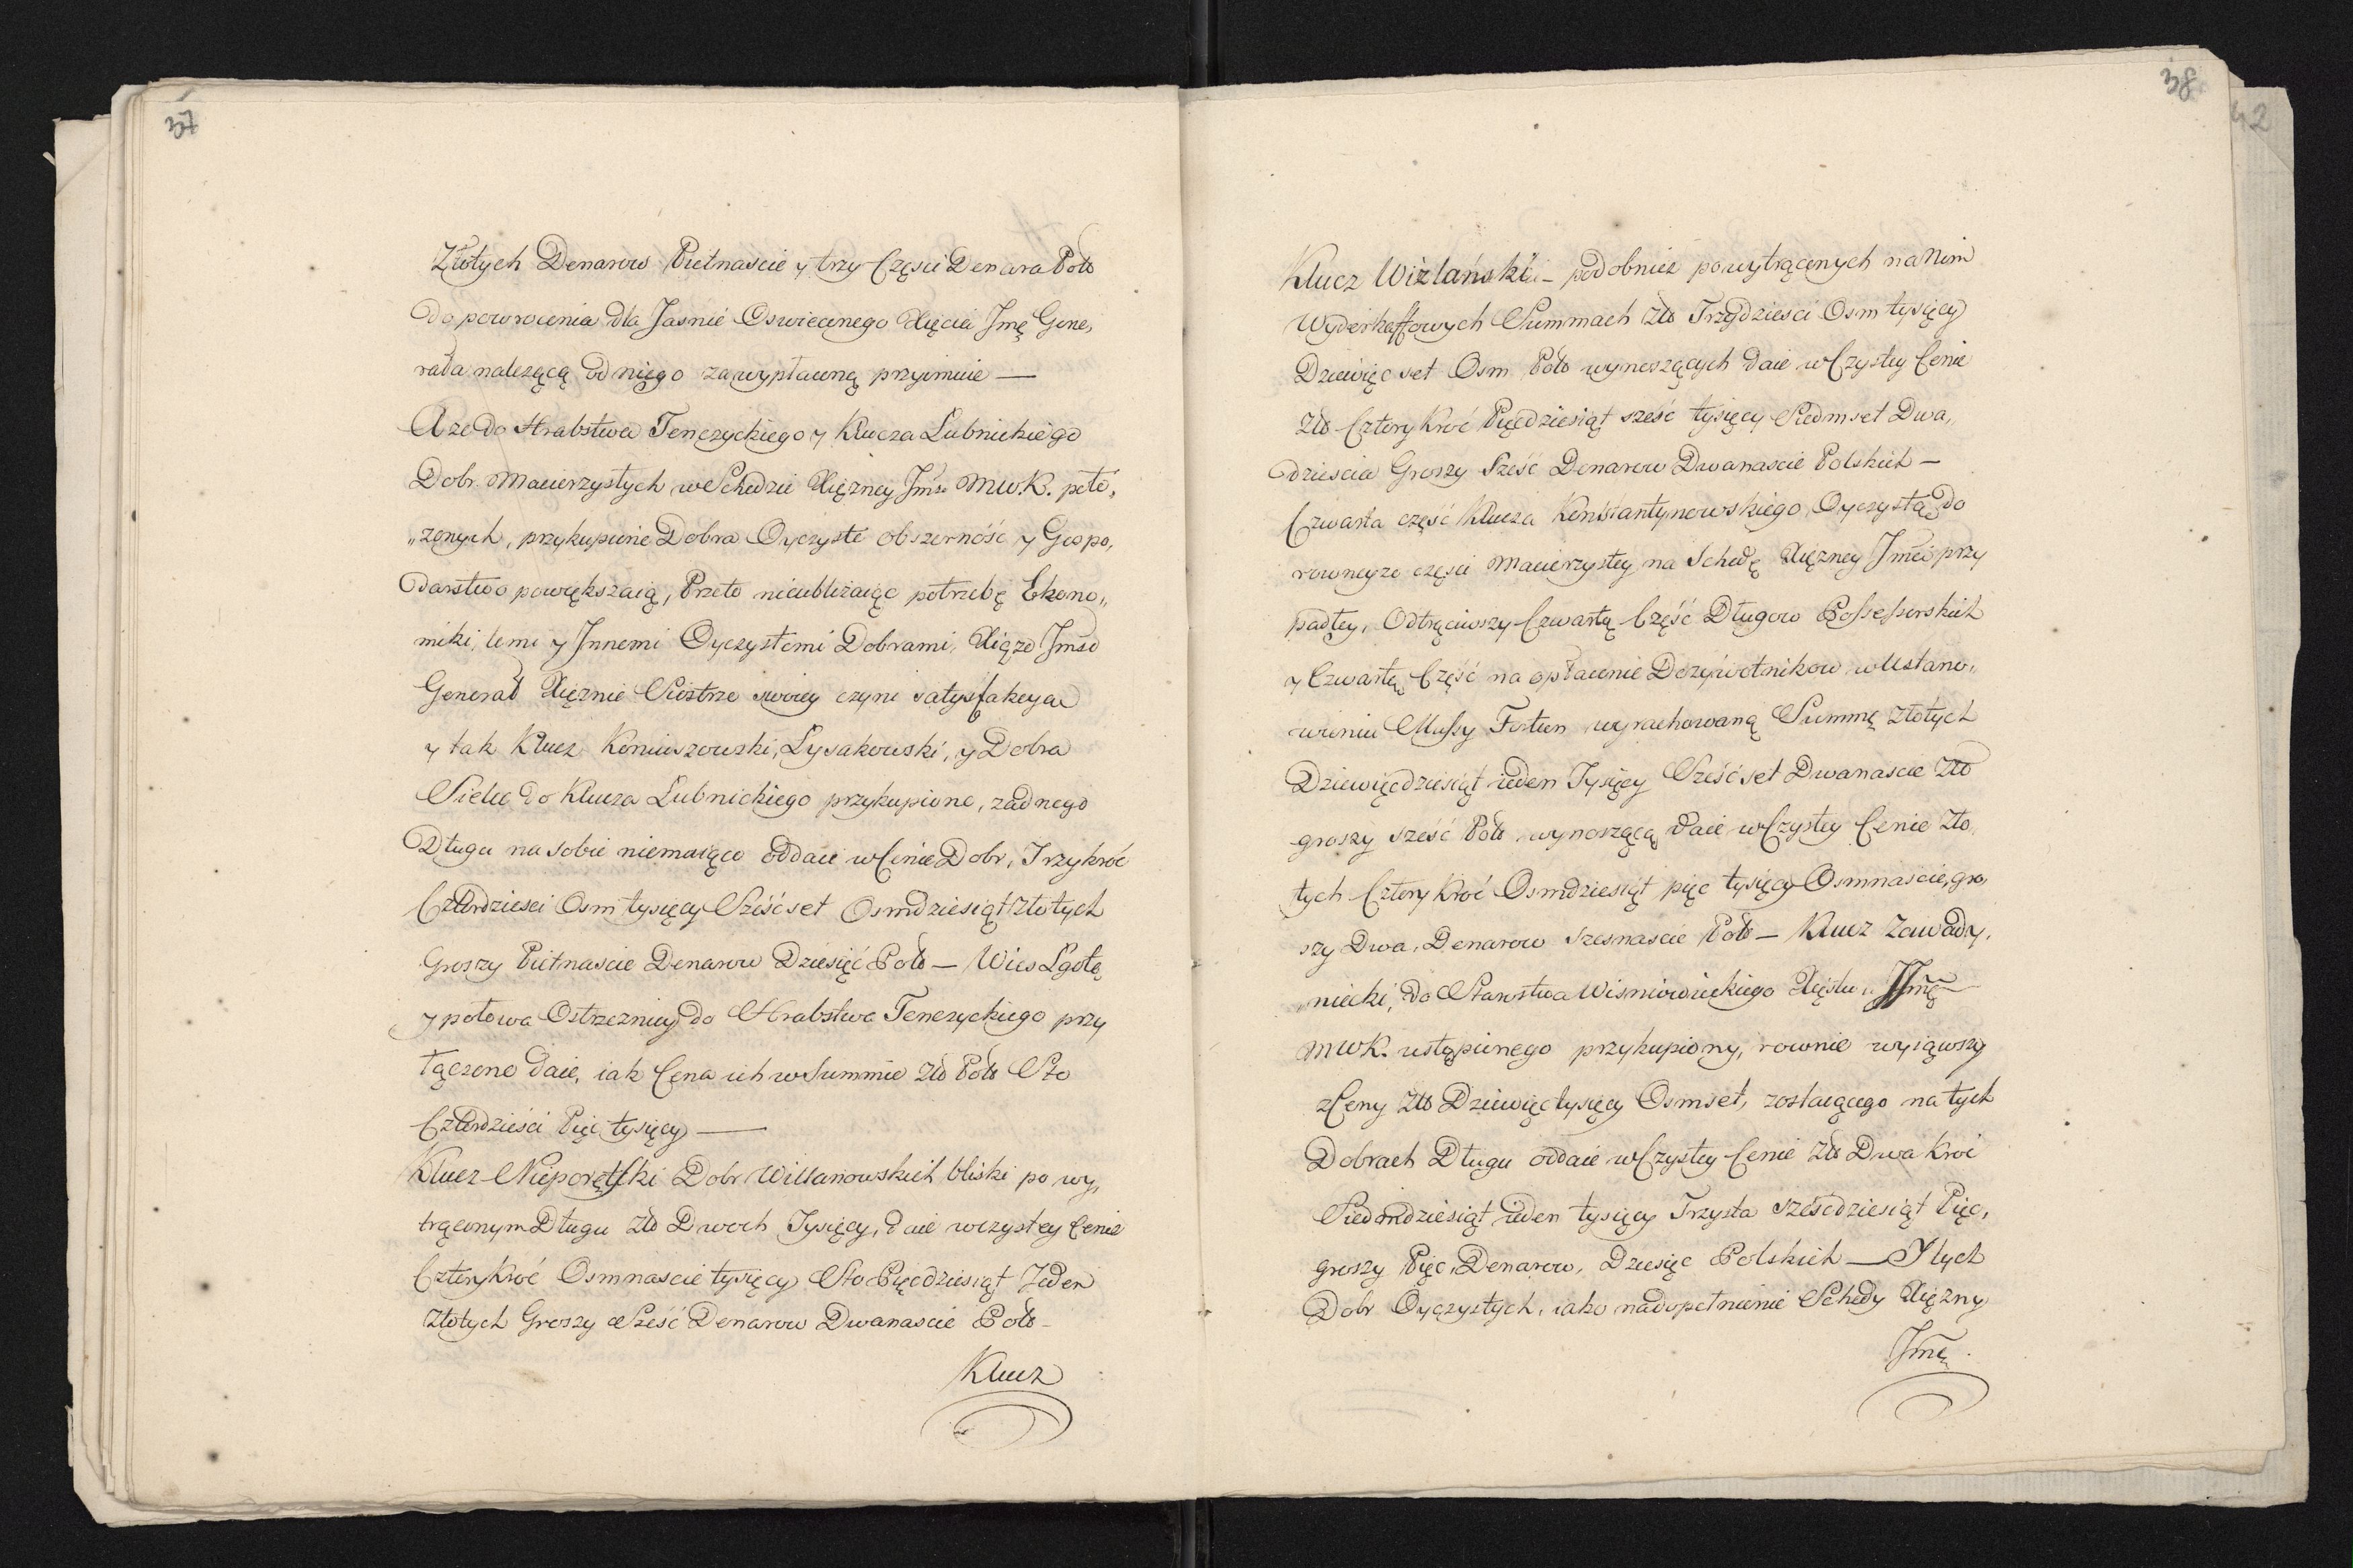 37
Złotych Denarow Pietnascie y trzy Części Denara Pols
do powrocenia dla Jasnie Oswieconego Xięcia Jmę Gene,
rała nalezącą od niego za wypłaconą przyimuie —
A ze do Hrabstwa Tenczyckiego y Klucza Lubnickiego
Dobr Macierzystych w Schedzie Xięzney Jms. MWK. poło,
„zonych, przykupione Dobra Oyczyste obszerność y Gospo,
darstwo powększaią, Przeto nieubliżaiąc potrzebę Ekono„
miki, temi y Innemi Oyczystemi Dobrami, Xiąze Jmsc
Generał Xięznie Siostrze swoiey czyni satysfakcya
y tak Klucz Koniuszowski, Łysakowski, y Dobra
Sielec do Klucza Lubnickiego przykupione, zadnego
Długu na sobie niemaiące oddaie w Cenie Dobr, Trzykroć
Czterdziesci Osm tysięcy Sześćset Osmdziesiąt Złotych
Groszy Pietnascie Denarow Dziesięć Pols — Wies Lgotę
y połowa Ostrzeznicy do Hrabstwa Tenczyckiego przy
łączone daie, iak Cena ich w Summie Zło Pols Sto
Czterdzieści Pięć tysięcy —
Klucz Nieporętski Dobr Willanowskich bliski po wy,
trąconym Długu Zło Dwoch Tysięcy, daie w czystey Cenie
Czterykroć Osmnascie tysięcy Sto Pięcdziesiąt Jeden
Złotych Groszy Sześć Denarow Dwanascie Pols —
Klucz
38
42
Klucz Wizlański — podobniez po wytrąconych na Nim
Wyderkaffowych Summach Zło Trzydziesci Osm tysięcy
Dziewięc set Osm Pols wynoszących daie w Czystey Cenie
Zło Cztery Kroć Pięcdziesiąt sześć tysięcy Siedmset Dwa,
dziescia Groszy Sześć Denarow Dwanascie Polskich —
Czwarta część Klucza Konstantynowskiego Oyczystą do
rowneyze części Macierzystey na Schedę Xięzney Jmci przy
padłey, Odtrąciwszy Czwartą Część Długow Possessorskich
y Czwartą Część na opłacenie Dozywotnikow w Ustano,
wieniu Massy Fortun wyrachowaną Summę Złotych
Dziewięcdziesiąt ieden Tysięcy Sześćset Dwanascie Zło
groszy sześć Pols wynoszącą daie w Czystey Cenie Zło
tych Cztery Kroć Osmdziesiąt pięc tysięcy Osmnascie, gro,
szy Dwa, Denarow szesnascie Pols — Klucz Zawady,
„niecki, do Starostwa Wisniowieckiego Xięstwu Jmę
MWK. ustąpionego przykupiony, rownie wyiąwszy
z Ceny Zło Dziewięc tysięcy Osmset, zostaiącego na tych
Dobrach Długu oddaie w Czystey Cenie Zło Dwa Kroć
Siedmdziesiąt ieden tysięcy Trzysta sześcdziesiąt Pięc,
groszy Pięc, Denarow, Dziesięc Polskich — Y tych
Dobr Oyczystych, iako na dopełnienie Schedy Xięzny
Jmę